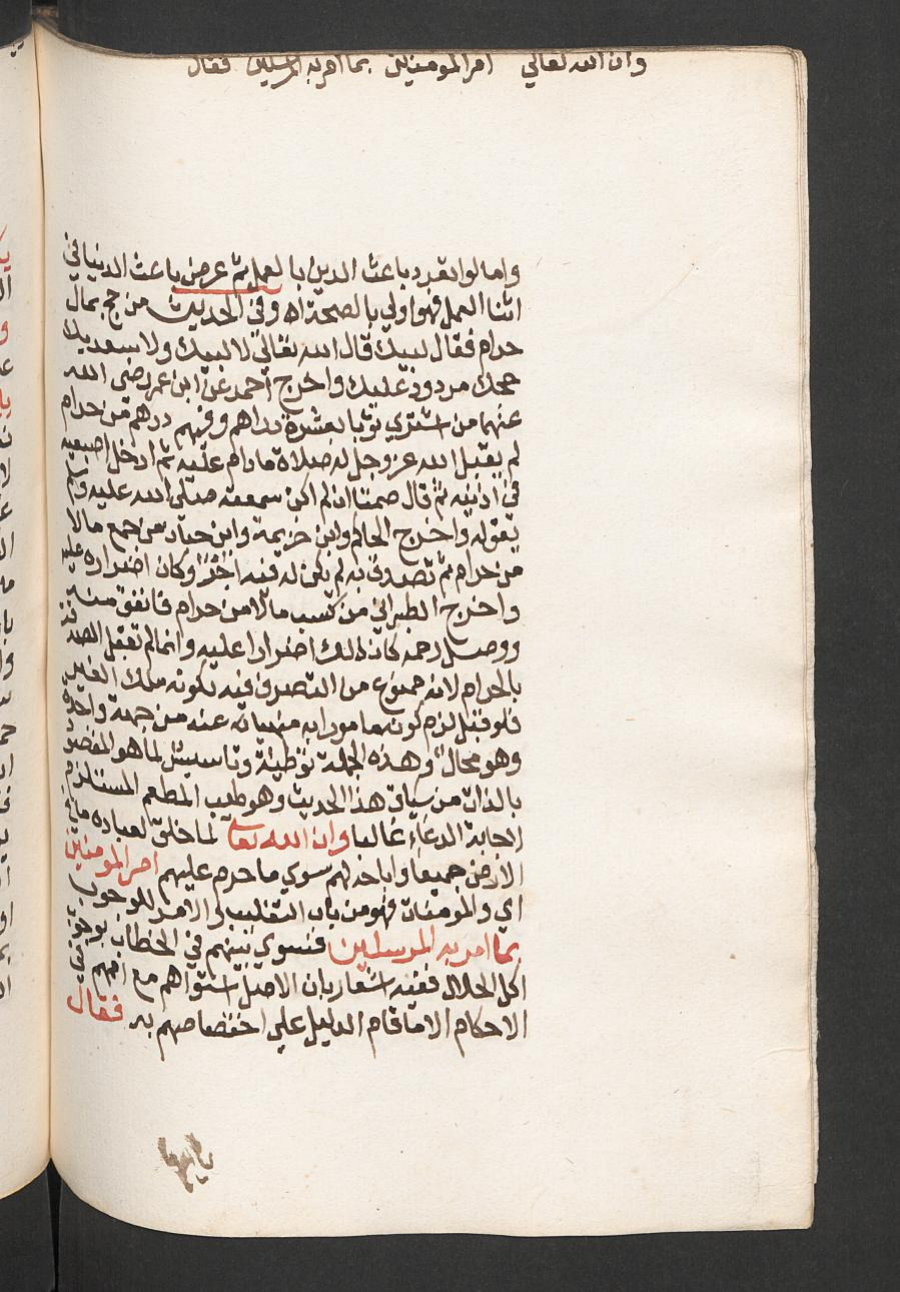 وان الله تعالي امر المومنين بما امر به المرسلين فقال
واما لو انفرد باعث الدين بالعمل ثم عرض باعث الدنيا في
اثنا العمل فهو اولي بالصحة اه وفي الحديث من حج بمال
حرام فقال لبيك قال الله تعالي لا لبيك ولا سعديك
حجك مردود عليك واخرج احمد عن ابن عمر رضي الله
عنهما من اشتري ثوبا بعشرة دراهم وفيهم درهم من حرام
لم يقبل الله عز وجل له صلاة مادام عليه ثم ادخل اصبعيه
في اذنيه ثم قال صمتا ان لم اكن سمعته صلي الله عليه وسلم
يقوله واخرج الحاكم وابن خزيمة وابن حبان من جمع مالا
من حرام ثم تصدق به لم يكن له فيه اجر وكان اصراره عليه
واخرج الطبراني من كسب مالا من حرام فانفق منه
ووصل رحمه كان ذلك اصرارا عليه وانما لم تقبل الصدقة
بالحرام لانه ممنوع من التصرف فيه لكونه ملك الغير
فلو قبل لزم كونه مامورا به منهيا عنه من جهة واحدة
وهو محال وهذه الجملة توطئة وتاسيس لما هو المقصود
بالذات من سياق هذا الحديث وهو طيب المطعم المستلزم
لاجابة الدعاء غالبا وان الله تعالي لما خلق لعباده ما في
الارض جميعا واباحه لهم سوي ما حرم عليهم امر المومنين
اي والمومنات فهو من باب التغليب والامر للوجوب
بما امر به المرسلين فسوي بينهم في الخطاب بوجوب
اكل الحلال ففيه اشعار بان الاصل استواهم مع اممهم في
الاحكام الا ما قام الدليل علي اختصاصهم به فقال